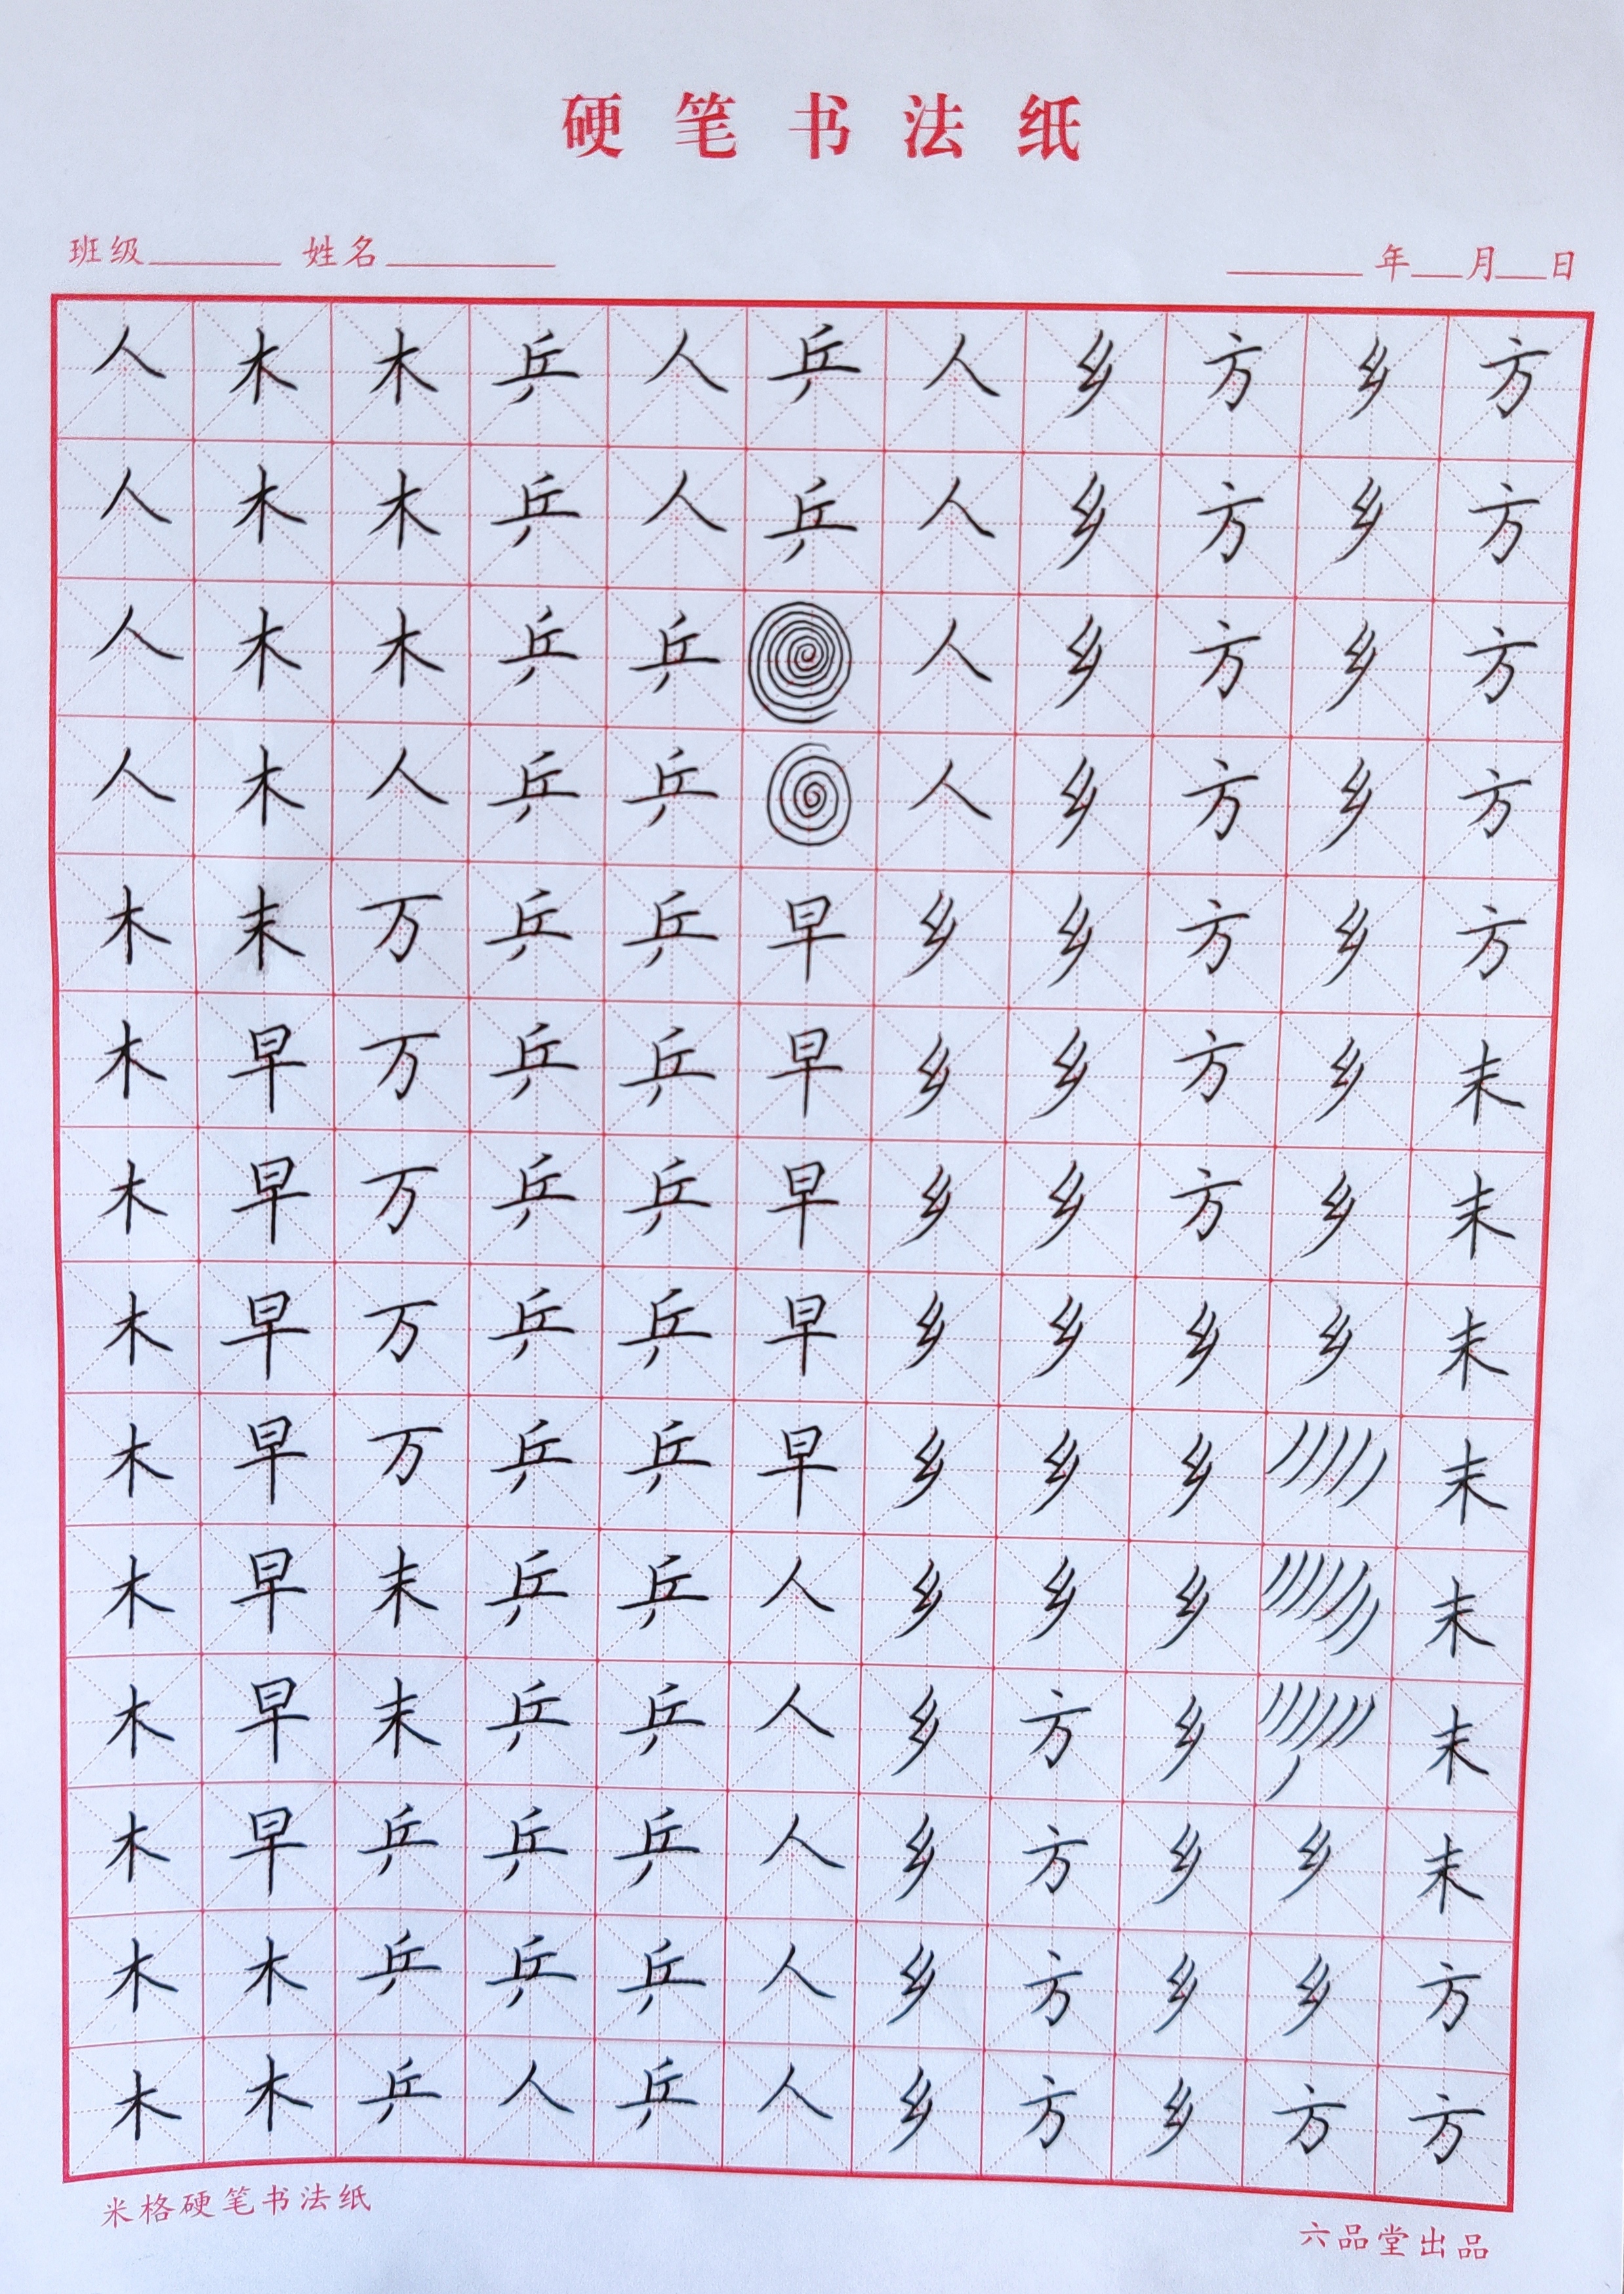 硬笔书法纸
班级 姓名 年 月 日
人 木 木 乒 人 乒 人 乡 方 乡 方
人 木 木 乒 人 乒 人 乡 方 乡 方
人 木 木 乒 乒 人 乡 方 乡 方
人 木 人 乒 乒 人 乡 方 乡 方
木 末 万 乒 乒 早 乡 乡 方 乡 方
木 早 万 乒 乒 早 乡 乡 方 乡 末
木 早 万 乒 乒 早 乡 乡 方 乡 末
木 早 万 乒 乒 早 乡 乡 乡 乡 末
木 早 万 乒 乒 早 乡 乡 乡 末
木 早 末 乒 乒 人 乡 乡 乡 末
木 早 末 乒 乒 人 乡 方 乡 末
木 早 乒 乒 乒 人 乡 方 乡 乡 末
木 木 乒 乒 乒 人 乡 方 乡 乡 方
木 木 乒 人 乒 人 乡 方 乡 方 方
米格硬笔书法纸
六品堂出品